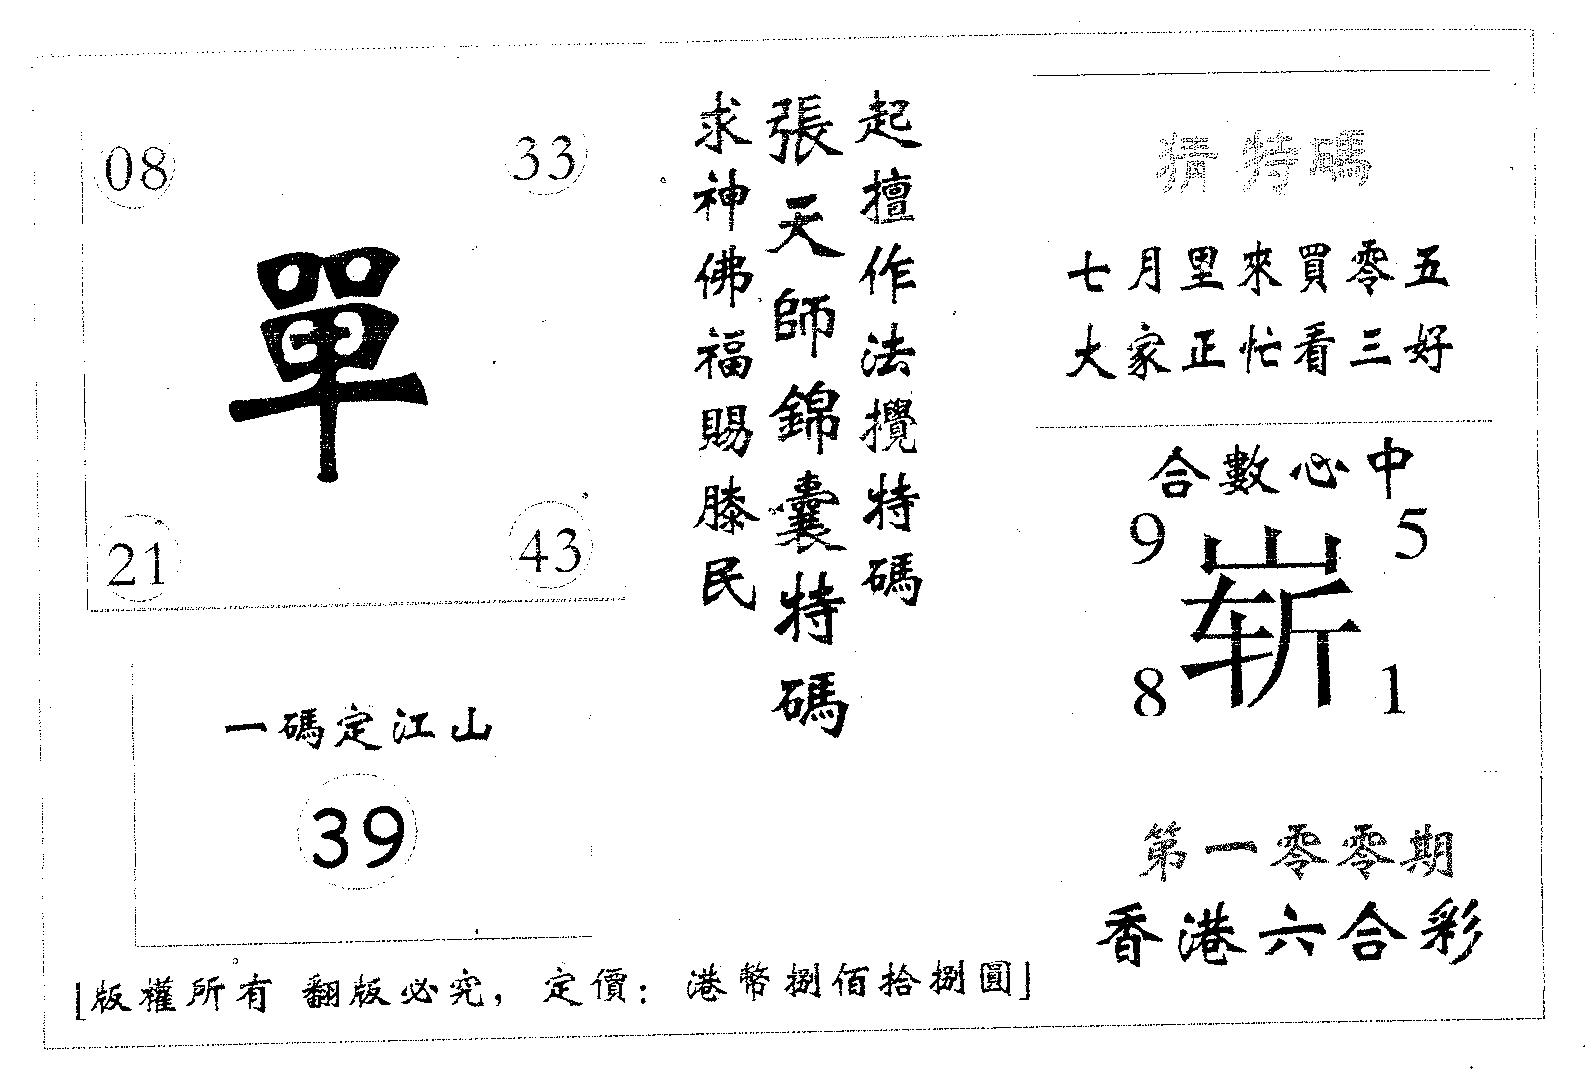 猜特碼
七月里來買零五
大家正忙看三好
合數必中
9 5
崭
8 1
第一零零期
香港六合彩
起擅作法攪特碼
張天師錦囊特碼
求神佛福賜膝民
08 33
單
21 43
一碼定江山
39
[版權所有 翻版必究，定價：港幣捌佰拾捌圓]